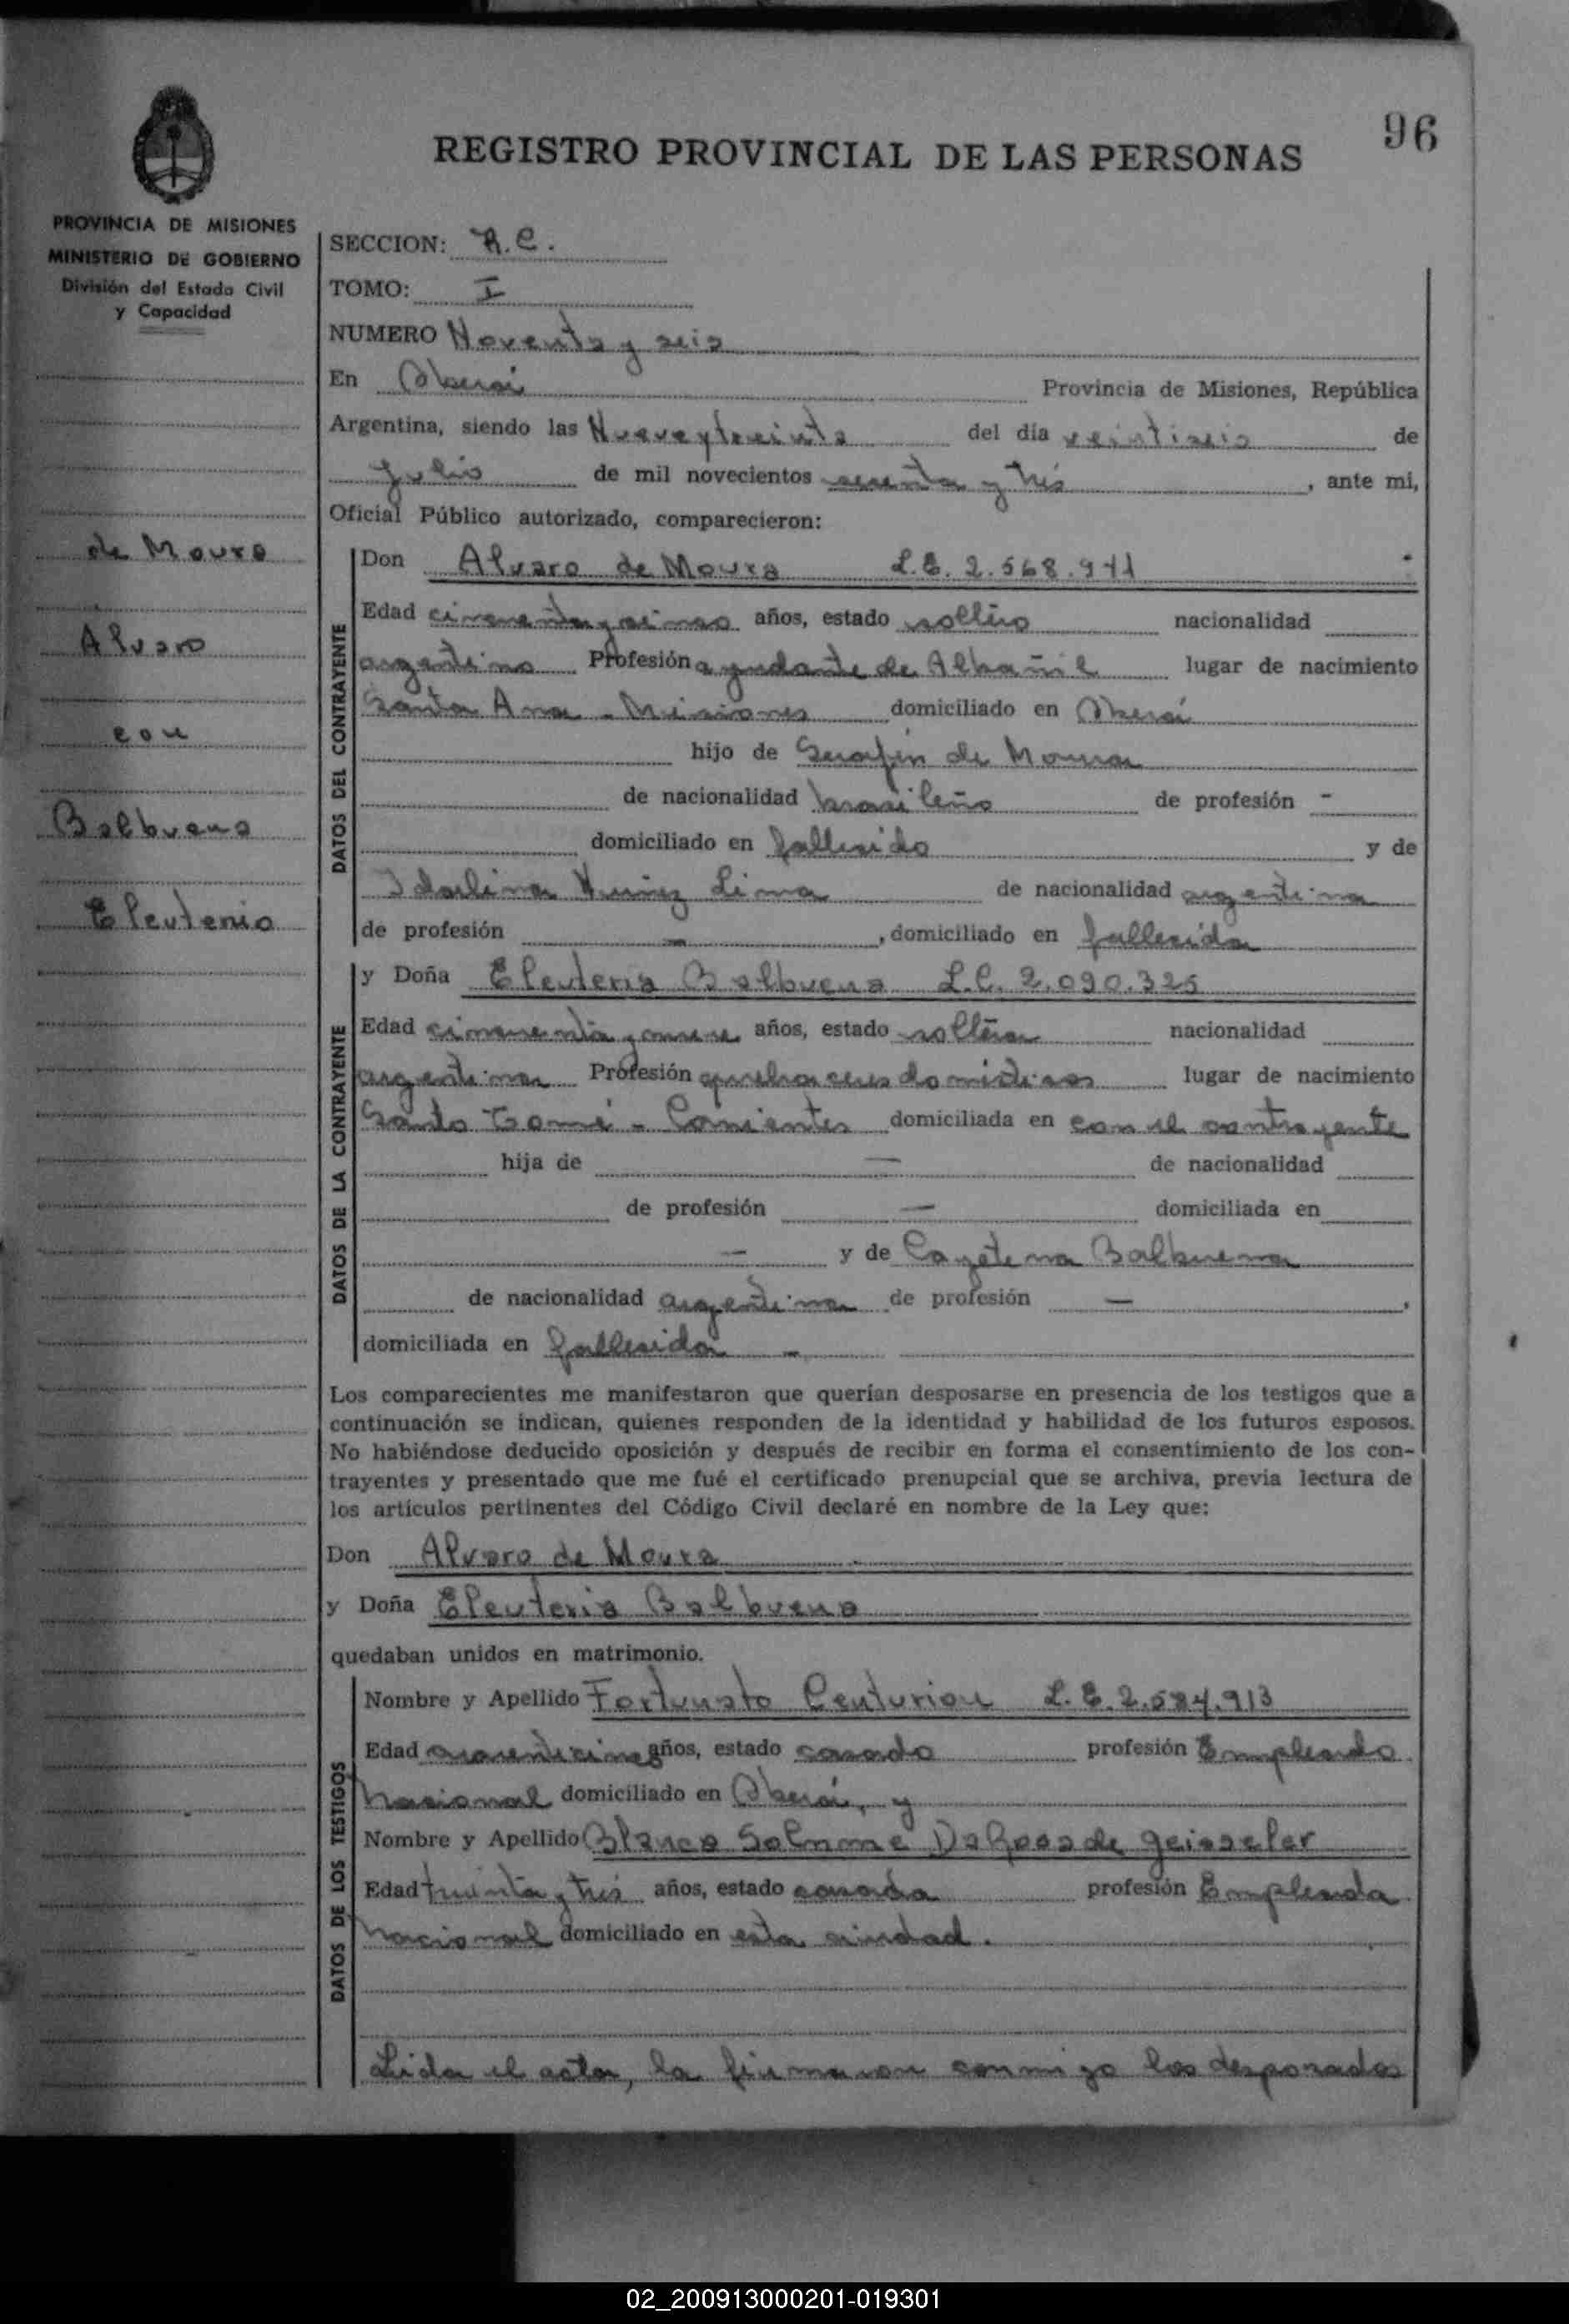 96
REGISTRO PROVINCIAL DE LAS PERSONAS
PROVINCIA DE MISIONES
MINISTERIO DE GOBIERNO
División del Estado Civil
y Capacidad
de Moura
Alvaro
con
Balbuena
Eleuteria
SECCION: R.C.
TOMO: I
NUMERO Noventa y seis
En Oberá Provincia de Misiones, República
Argentina, siendo las Nueve y treinta del día veintiseis de
Julio de mil novecientos sesenta y tres, ante mi,
Oficial Público autorizado, comparecieron:
DATOS DEL CONTRAYENTE
Don Alvaro de Moura L.E. 2.568.941
Edad cincuenta y cinco años, estado soltero nacionalidad
argentino Profesión ayudante de Albañil lugar de nacimiento
Santa Ana - Misiones domiciliado en Oberá
hijo de Serafin de Moura
de nacionalidad brasileño de profesión -
domiciliado en fallecido y de
Idalina Nuñez Lima de nacionalidad argentina
de profesión - , domiciliado en fallecida
DATOS DE LA CONTRAYENTE
y Doña Eleuteria Balbuena L.C. 2.090.325
Edad cincuenta y nueve años, estado soltera nacionalidad
argentina Profesión quehaceres domésticos lugar de nacimiento
Santo Tomé - Corrientes domiciliada en con el contrayente
hija de — de nacionalidad
de profesión — domiciliada en
— y de Cayetana Balbuena
de nacionalidad argentina de profesión — ,
domiciliada en fallecida -
Los comparecientes me manifestaron que querían desposarse en presencia de los testigos que a
continuación se indican, quienes responden de la identidad y habilidad de los futuros esposos.
No habiéndose deducido oposición y después de recibir en forma el consentimiento de los con-
trayentes y presentado que me fué el certificado prenupcial que se archiva, previa lectura de
los artículos pertinentes del Código Civil declaré en nombre de la Ley que:
Don Alvaro de Moura
y Doña Eleuteria Balbuena
quedaban unidos en matrimonio.
DATOS DE LOS TESTIGOS
Nombre y Apellido Fortunato Centurion L.E. 2.584.913
Edad años, estado casado profesión Empleado
Nacional domiciliado en Oberá, y
Nombre y Apellido Blanca Salomé DaRosa de Geisseler
Edad treinta y tres años, estado casada profesión Empleada
Nacional domiciliado en esta ciudad.
Leida el acta, la firmaron conmigo los desposados
02_200913000201-019301